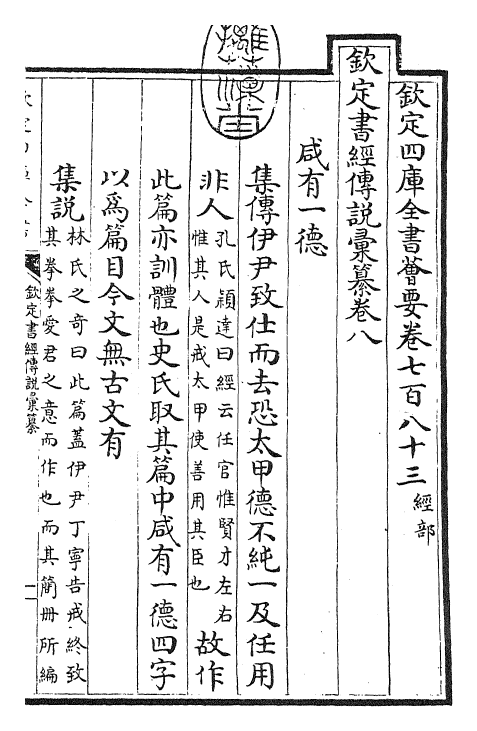 欽定四庫全書薈要卷七百八十三 經部
欽定書經傳說彙纂卷八
咸有一德
集傳伊尹致仕而去恐太甲德不純一及任用
非人 孔氏穎達曰經云任官惟賢才左右
惟其人是戒太甲使善用其臣也 故作
此篇亦訓體也史氏取其篇中咸有一德四字
以爲篇目今文無古文有
集説 林氏之奇曰此篇蓋伊尹丁寧告戒終致
其拳拳愛君之意而作也而其簡冊所編
欽定書經傳說彙纂